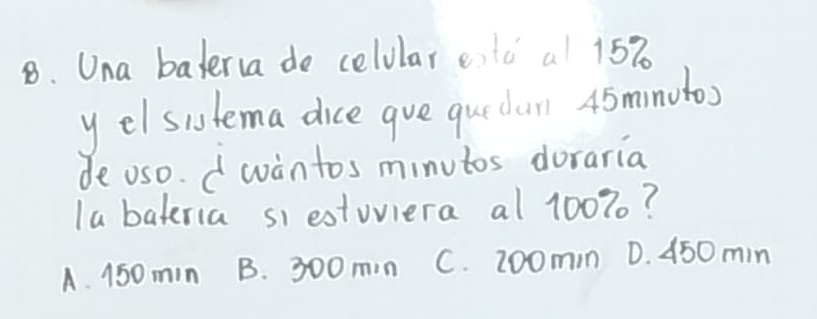 8. Una bateria de celular está al 15%
y el sistema dice que quedan 45 minutos
de uso. ¿ cuántos minutos duraría
la bateria si estuviera al 100%?
A. 150 min B. 300 min C. 200 min D. 450 min